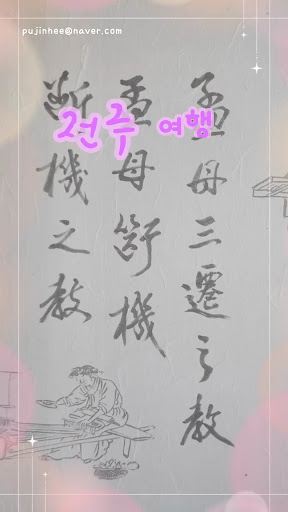 pujinhee@naver.com
전주 여행
孟母三遷之教
孟母斷機
斷機之教